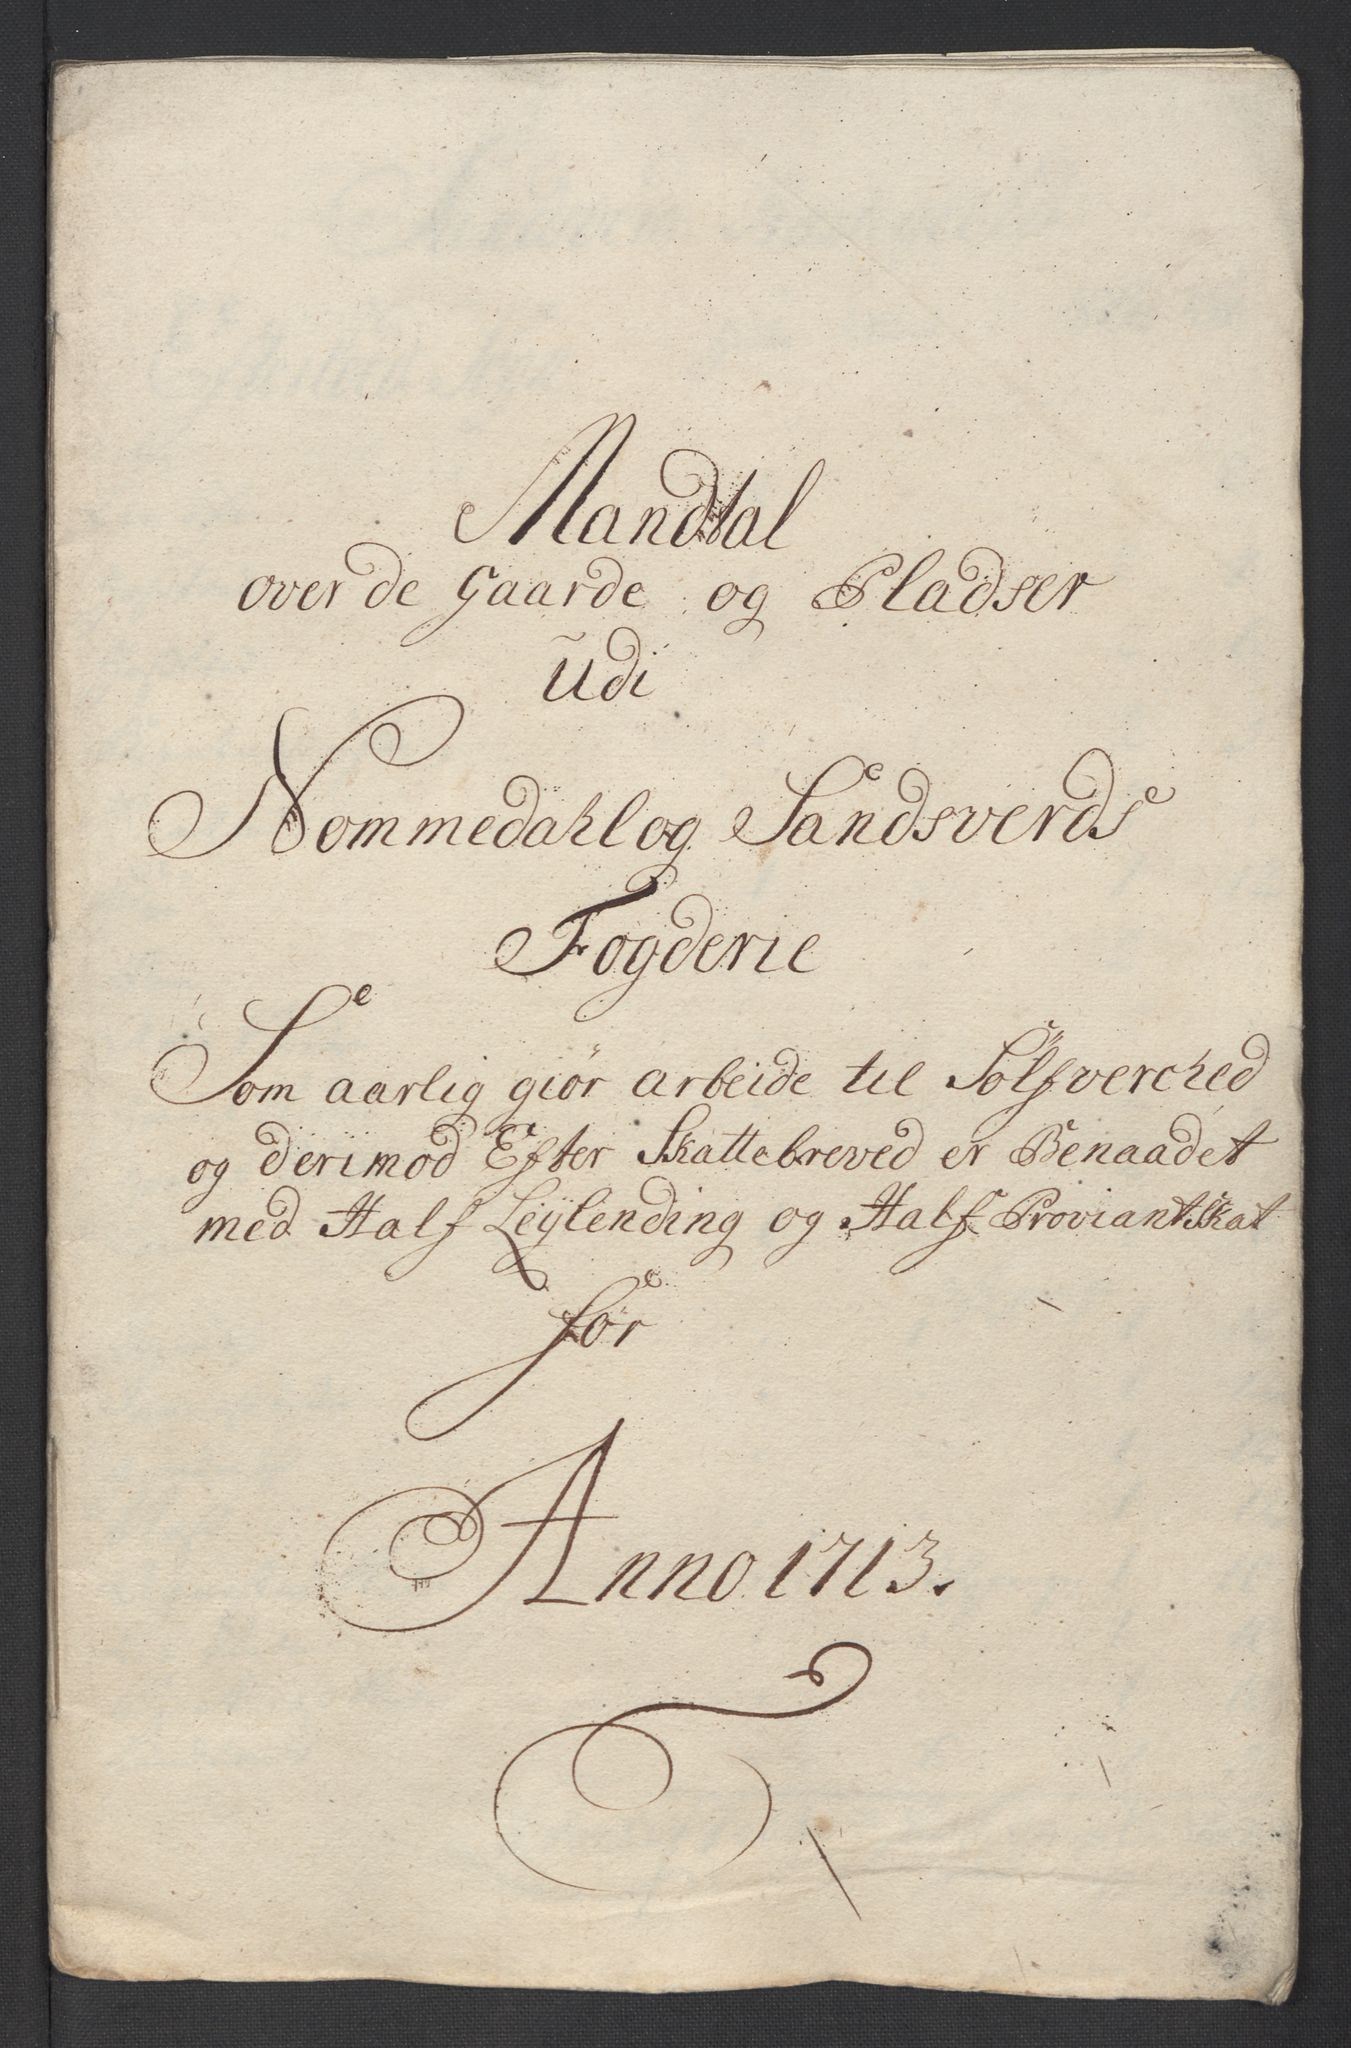 Mandtal
over de gaarde og Pladser
udi
Nommedahl og Sandsverds
Fogderie
Som aarlig giör arbeide til Sölfverched
og derimod Efter Skattebreved er Benaadet
med Half Leylending og Half Proviantskat
for
Anno 1713.